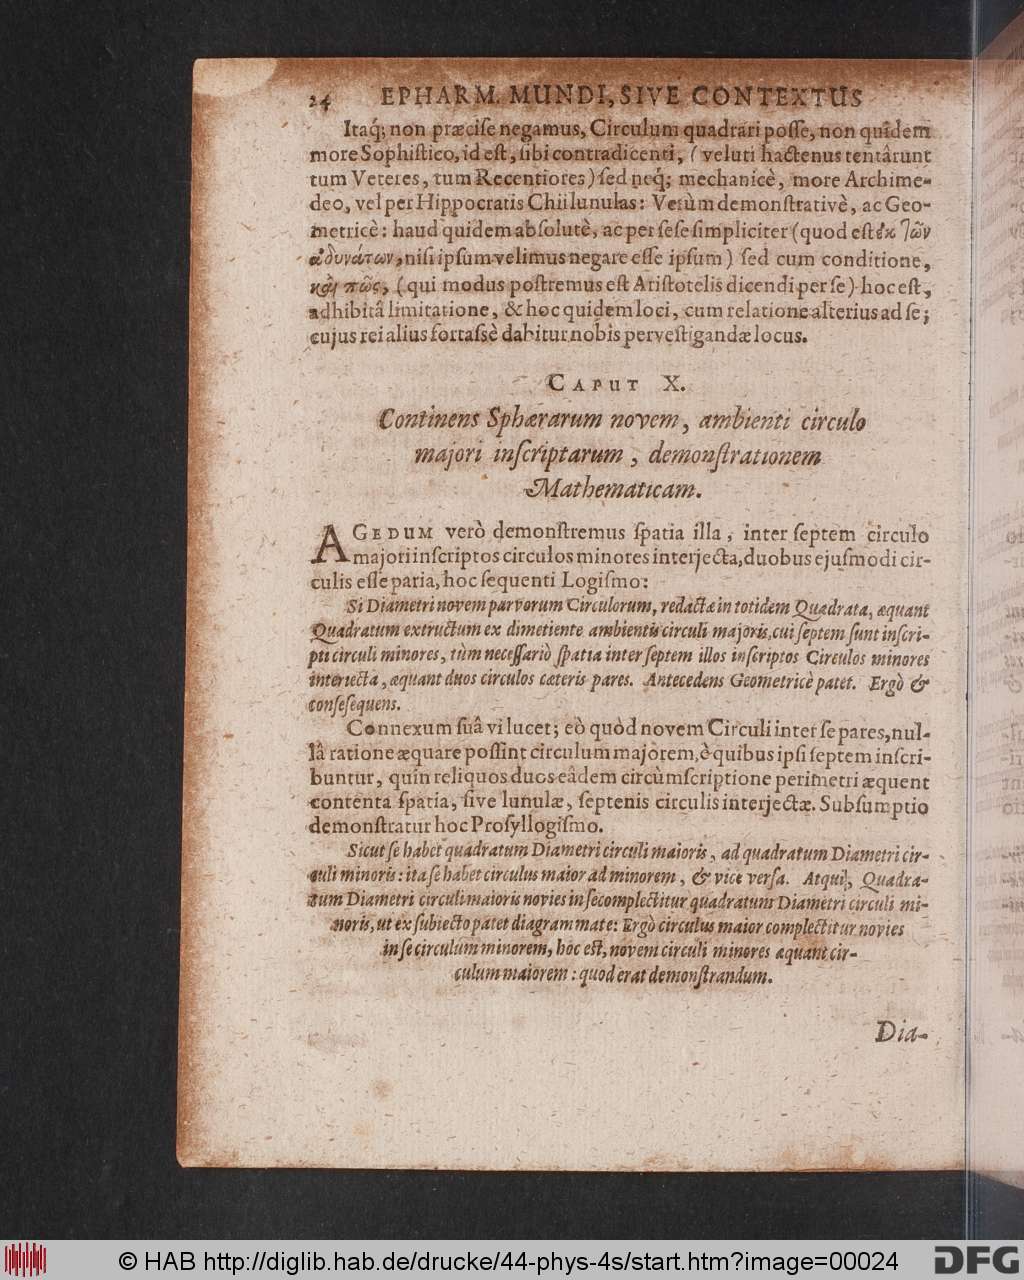 24 EPHARM. MUNDI, SIVE CONTEXTUS
Itaq́; non præciſe negamus, Circulum quadrari poſſe, non quidem
more Sophiſtico, id eſt, ſibi contradicenti, (veluti hactenus tentârunt
tum Veteres, tum Recentiores) ſed neq́; mechanicè, more Archime-
deo, vel per Hippocratis Chii lunulas: Verùm demonſtrativè, ac Geo-
metricè: haud quidem abſolutè, ac per ſeſe ſimpliciter (quod eſt ἐκ τῶν
ἀδυνάτων, niſi ipſum velimus negare eſſe ipſum) ſed cum conditione,
καὶ πῶς, (qui modus poſtremus eſt Ariſtotelis dicendi per ſe) hoc eſt,
adhibitâ limitatione, & hoc quidem loci, cum relatione alterius ad ſe;
cujus rei alius fortaſſè dabitur nobis perveſtigandæ locus.
CAPUT X.
Continens Sphærarum novem, ambienti circulo
majori inſcriptarum, demonſtrationem
Mathematicam.
AGEDUM verò demonſtremus ſpatia illa, inter ſeptem circulo
majori inſcriptos circulos minores interjecta, duobus ejuſmodi cir-
culis eſſe paria, hoc ſequenti Logiſmo:
Si Diametri novem parvorum Circulorum, redactæ in totidem Quadrata, æquant
Quadratum extructum ex dimetiente ambientis circuli majoris, cui ſeptem ſunt inſcri-
pti circuli minores, tùm neceſſariò ſpatia inter ſeptem illos inſcriptos Circulos minores
interiecta, æquant duos circulos cæteris pares. Antecedens Geometricè patet. Ergò &
conſeſequens.
Connexum ſuâ vi lucet; eò quòd novem Circuli inter ſe pares, nul-
lâ ratione æquare poſſint circulum majorem, è quibus ipſi ſeptem inſcri-
buntur, quin reliquos duos eâdem circùmſcriptione perimetri æquent
contenta ſpatia, ſive lunulæ, ſeptenis circulis interjectæ. Subſumptio
demonſtratur hoc Proſyllogiſmo.
Sicut ſe habet quadratum Diametri circuli maioris, ad quadratum Diametri cir-
culi minoris: ita ſe habet circulus maior ad minorem, & vice verſa. Atqui, Quadra-
tum Diametri circuli maioris novies in ſe complectitur quadratum Diametri circuli mi-
noris, ut ex ſubiecto patet diagrammate: Ergò circulus maior complectitur novies
in ſe circulum minorem, hoc eſt, novem circuli minores æquant cir-
culum maiorem: quod erat demonſtrandum.
Dia-
© HAB http://diglib.hab.de/drucke/44-phys-4s/start.htm?image=00024
DFG